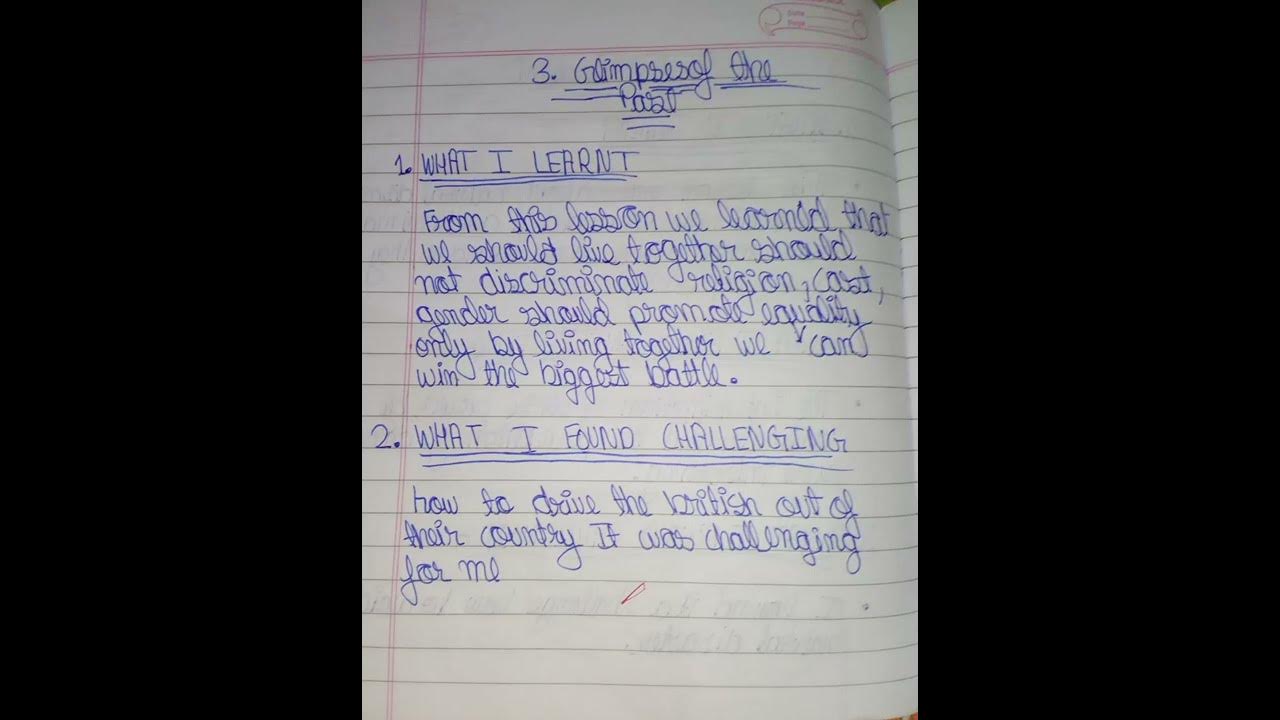 Date
Page
3. Glimpses of the
Past
1. WHAT I LEARNT
From this lesson we learned that
we should live together should
not discriminate religion, cast,
gender should promote equality
only by living together we can
win the biggest battle.
2. WHAT I FOUND CHALLENGING
how to drive the british out of
their country It was challenging
for me